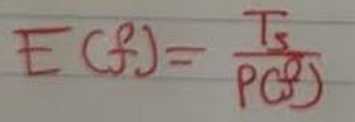 E(f) = Ts/P(f)